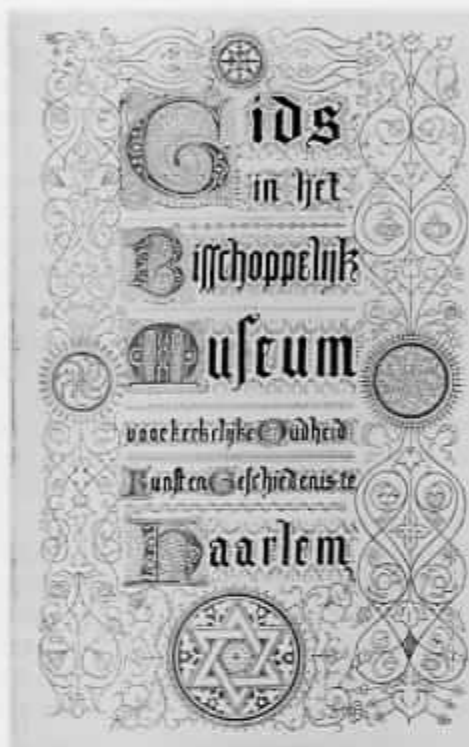 Gids
in het
Bisschoppelijk
Museum
voor kerkelijke Oudheid
Kunst en Geschiedenis te
Haarlem